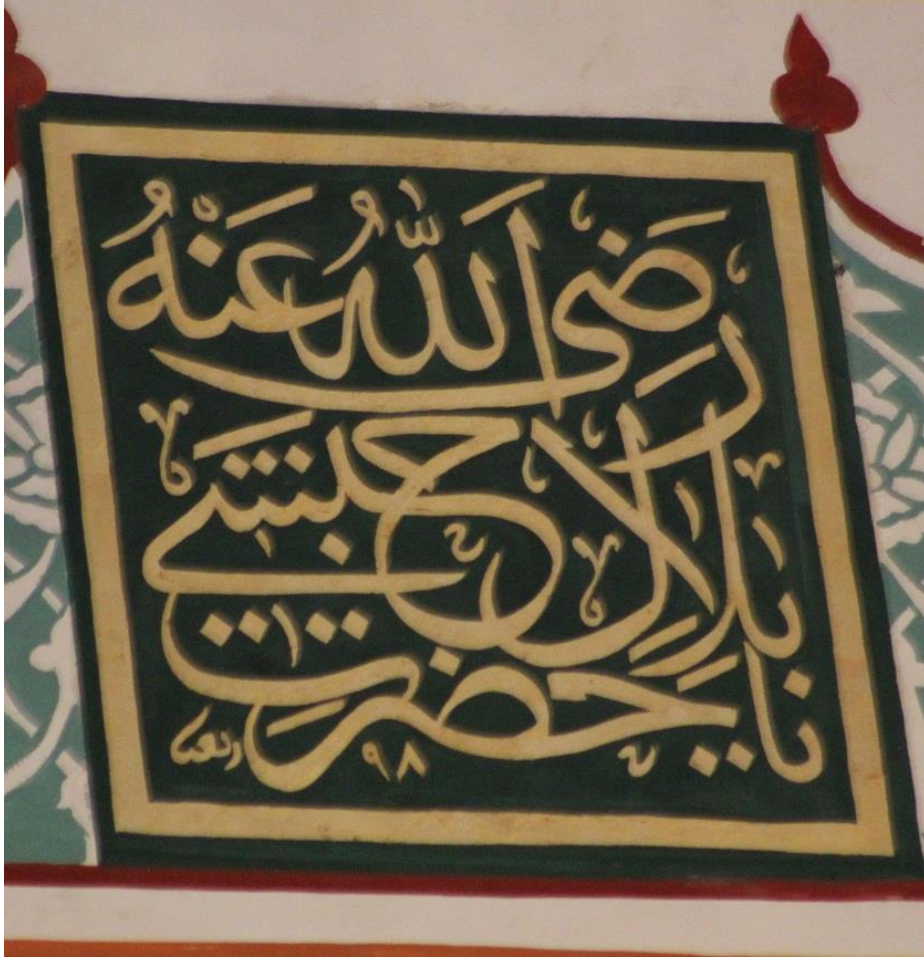 يا حضرت
بلال حبشي
رضي الله عنه
٩٨